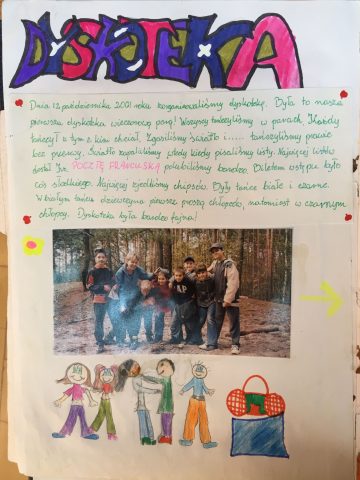 DYSKOTEKA
Dnia 12 października 2001 roku zorganizowaliśmy dyskotekę. Była to nasza
pierwsza dyskoteka wieczorową porą! Wszyscy tańczyliśmy w parach. Każdy
tańczył z tym z kim chciał. Zgasiliśmy światło i..... tańczyliśmy prawie
bez przerwy. Światło zapalaliśmy wtedy kiedy pisaliśmy listy. Najwięcej listów
dostał POCZTĘ FRANCUSKĄ polubiliśmy bardzo. Biletem wstępu było
coś słodkiego. Najwięcej zjedliśmy chipsów. Były tańce białe i czarne.
W białym tańcu dziewczyna pierwsze proszą chłopców, natomiast w czarnym
chłopcy. Dyskoteka była bardzo fajna!